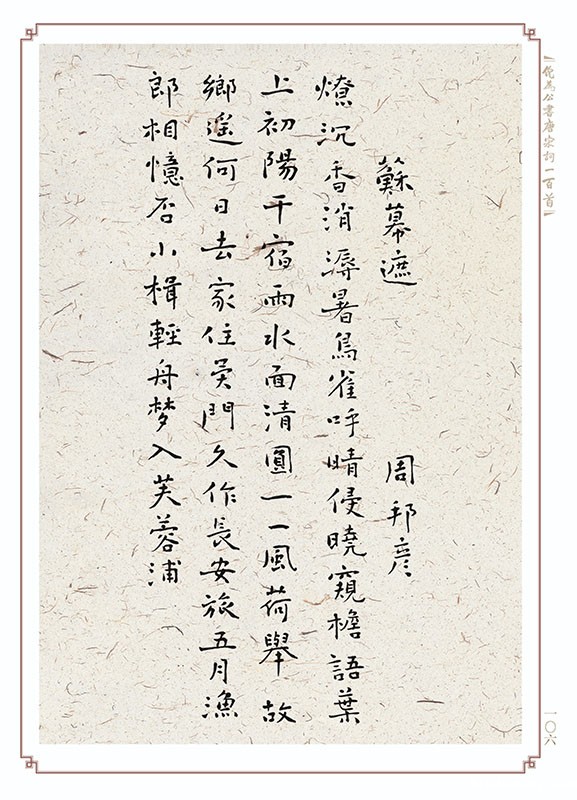 倪為公書唐宋詞一百首
蘇幕遮
周邦彦
燎沉香消溽暑鳥雀呼晴侵曉窺檐語葉
上初陽干宿雨水面清圓一一風荷舉 故
鄉遥何日去家住吴門久作長安旅五月漁
郎相憶否小楫輕舟梦入芙蓉浦
一〇六